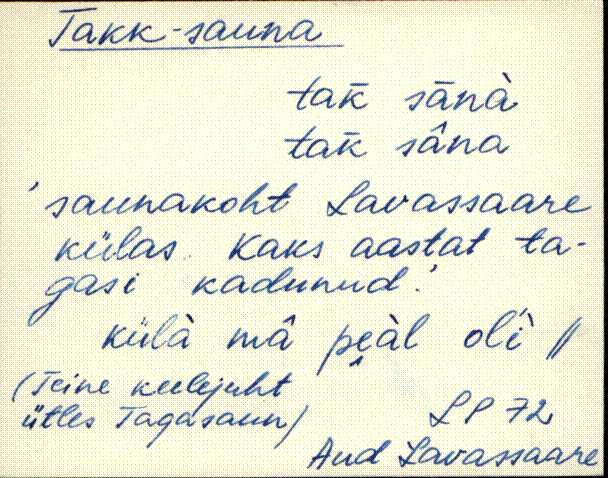 Takk-sauna
tak̄ sānà
tak̄ sâna
'saunakoht Lavassaare
külas. Kaks aastat ta-
gasi kadunud.'
külà mâ pe̬àl oĺì //
(Teine keelejuht
ütles Tagasaun)
LP 72
Aud Lavassaare